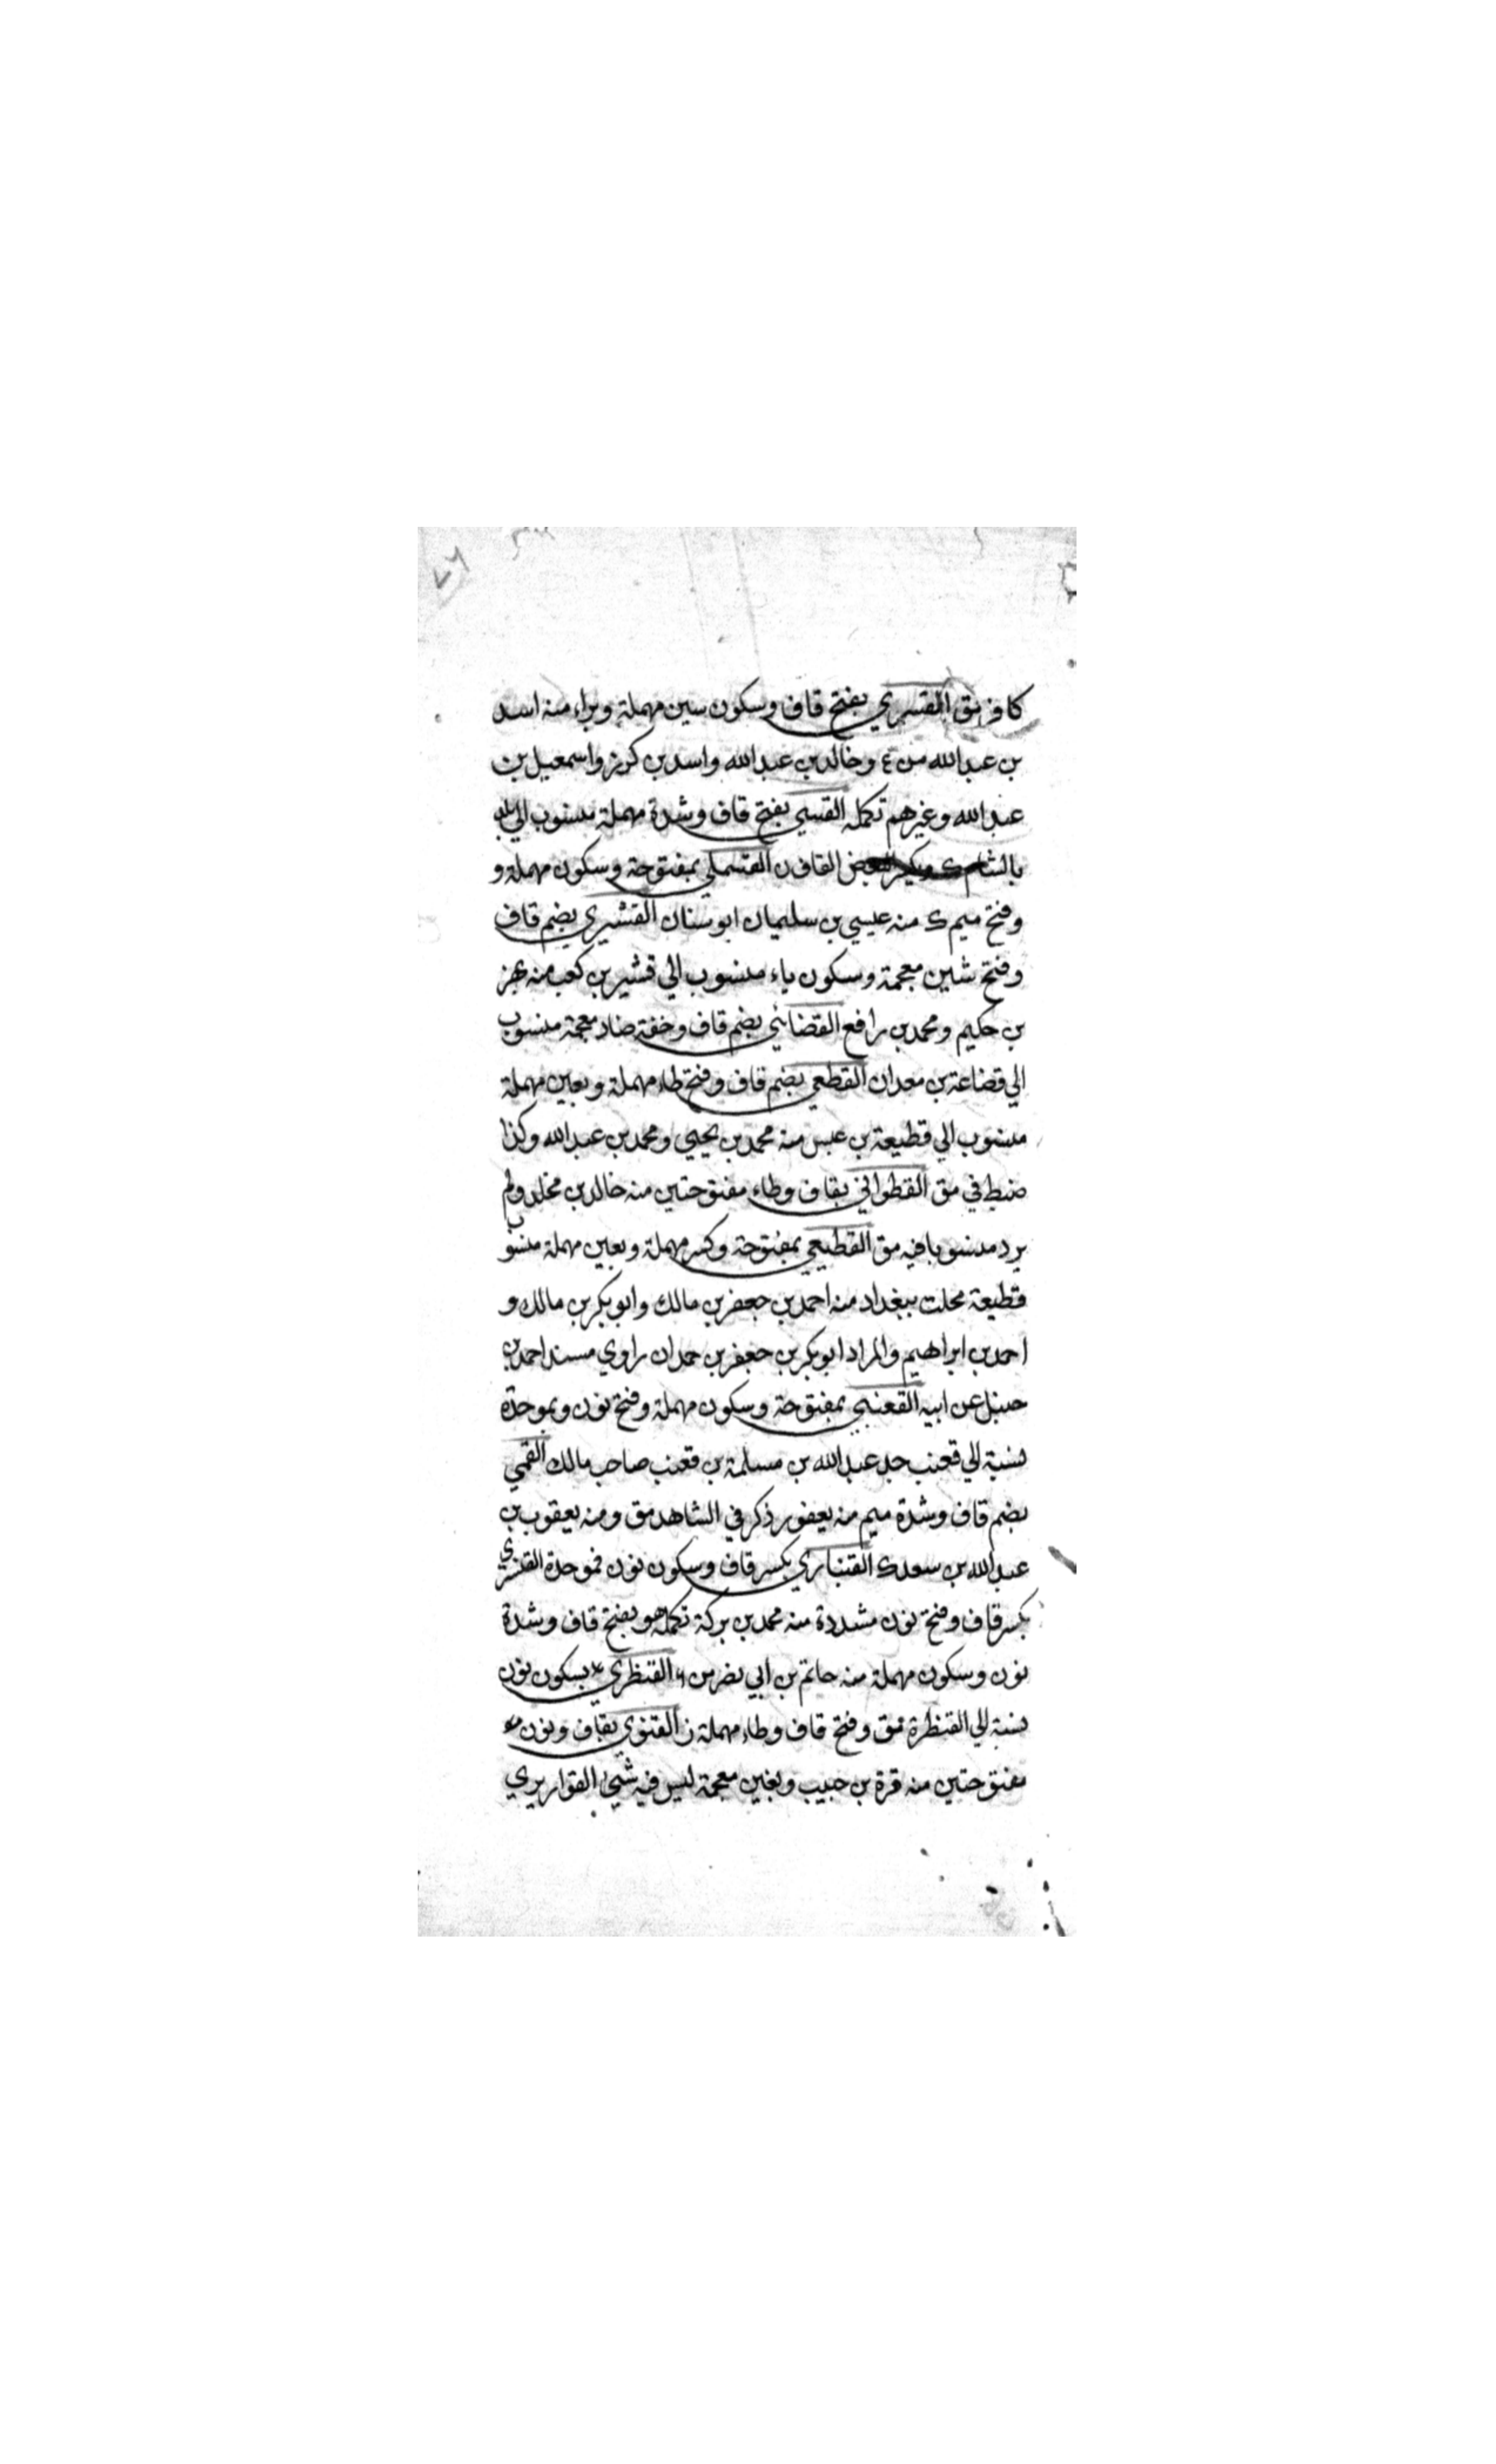 ٧٦
كافر مق القسري بفتح قاف وسكون سين مهملة وبراء منه اسد
بن عبد الله من ٤ وخالد بن عبد الله واسد بن كرز واسمعيل بن
عبد الله وغيرهم تكمله القسي بفتح قاف وشدة مهملة منسوب الي بلد
بالشام ك بعض القاف ن القسملي بمفتوحة وسكون مهملة و
وفتح ميم ك منه عيسي بن سليمان ابو سنان القشيري بضم قاف
وفتح شين معجمة وسكون ياء منسوب الي قشير بن كعب منه بهز
بن حكيم ومحمد بن رافع القضائي بضم قاف وخفة ضاد معجمة منسوب
الي قضاعة بن معدان القطعي بضم قاف وفتح طاء مهملة وبعين مهملة
منسوب الي قطيعة بن عبس منه محمد بن يحيي ومحمد بن عبد الله وكذا
ضبط في مق القطواني بقاف وطاء مفتوحتين منه خالد بن مخلد ولم
يرد منسوبا فيه مق القطيعي بمفتوحة وكسر مهملة وبعين مهملة منسوب
قطيعة محلت ببغداد منه احمد بن جعفر بن مالك وابو بكر بن مالك و
احمد بن ابراهيم والمراد ابو بكر بن جعفر بن حمدان راوي مسند احمد بن
حنبل عن ابيه القعنبي بمفتوحة وسكون مهملة وفتح نون وبموحدة
نسبة الي قعنب جد عبد الله بن مسلمة بن قعنب صاحب مالك القمي
بضم قاف وشدة ميم منه يعفور ذكر في الشاهد مق ومنه يعقوب بن
عبد الله بن سعد ك القنباري بكسر قاف وسكون نون فموحدة القنسري
بكسر قاف وفتح نون مشددة منه محمد بن بركة تكملة هو بفتح قاف وشدة
نون وسكون مهملة منه حاتم بن ابي نضر من ٦ القنظري بسكون نون
نسبة الي القنظرة مق وفتح قاف وطاء مهملة ن القنوي بقاف ونون
مفتوحتين منه قرة بن حبيب وبغين معجمة ليس فيه شيئ القواريري